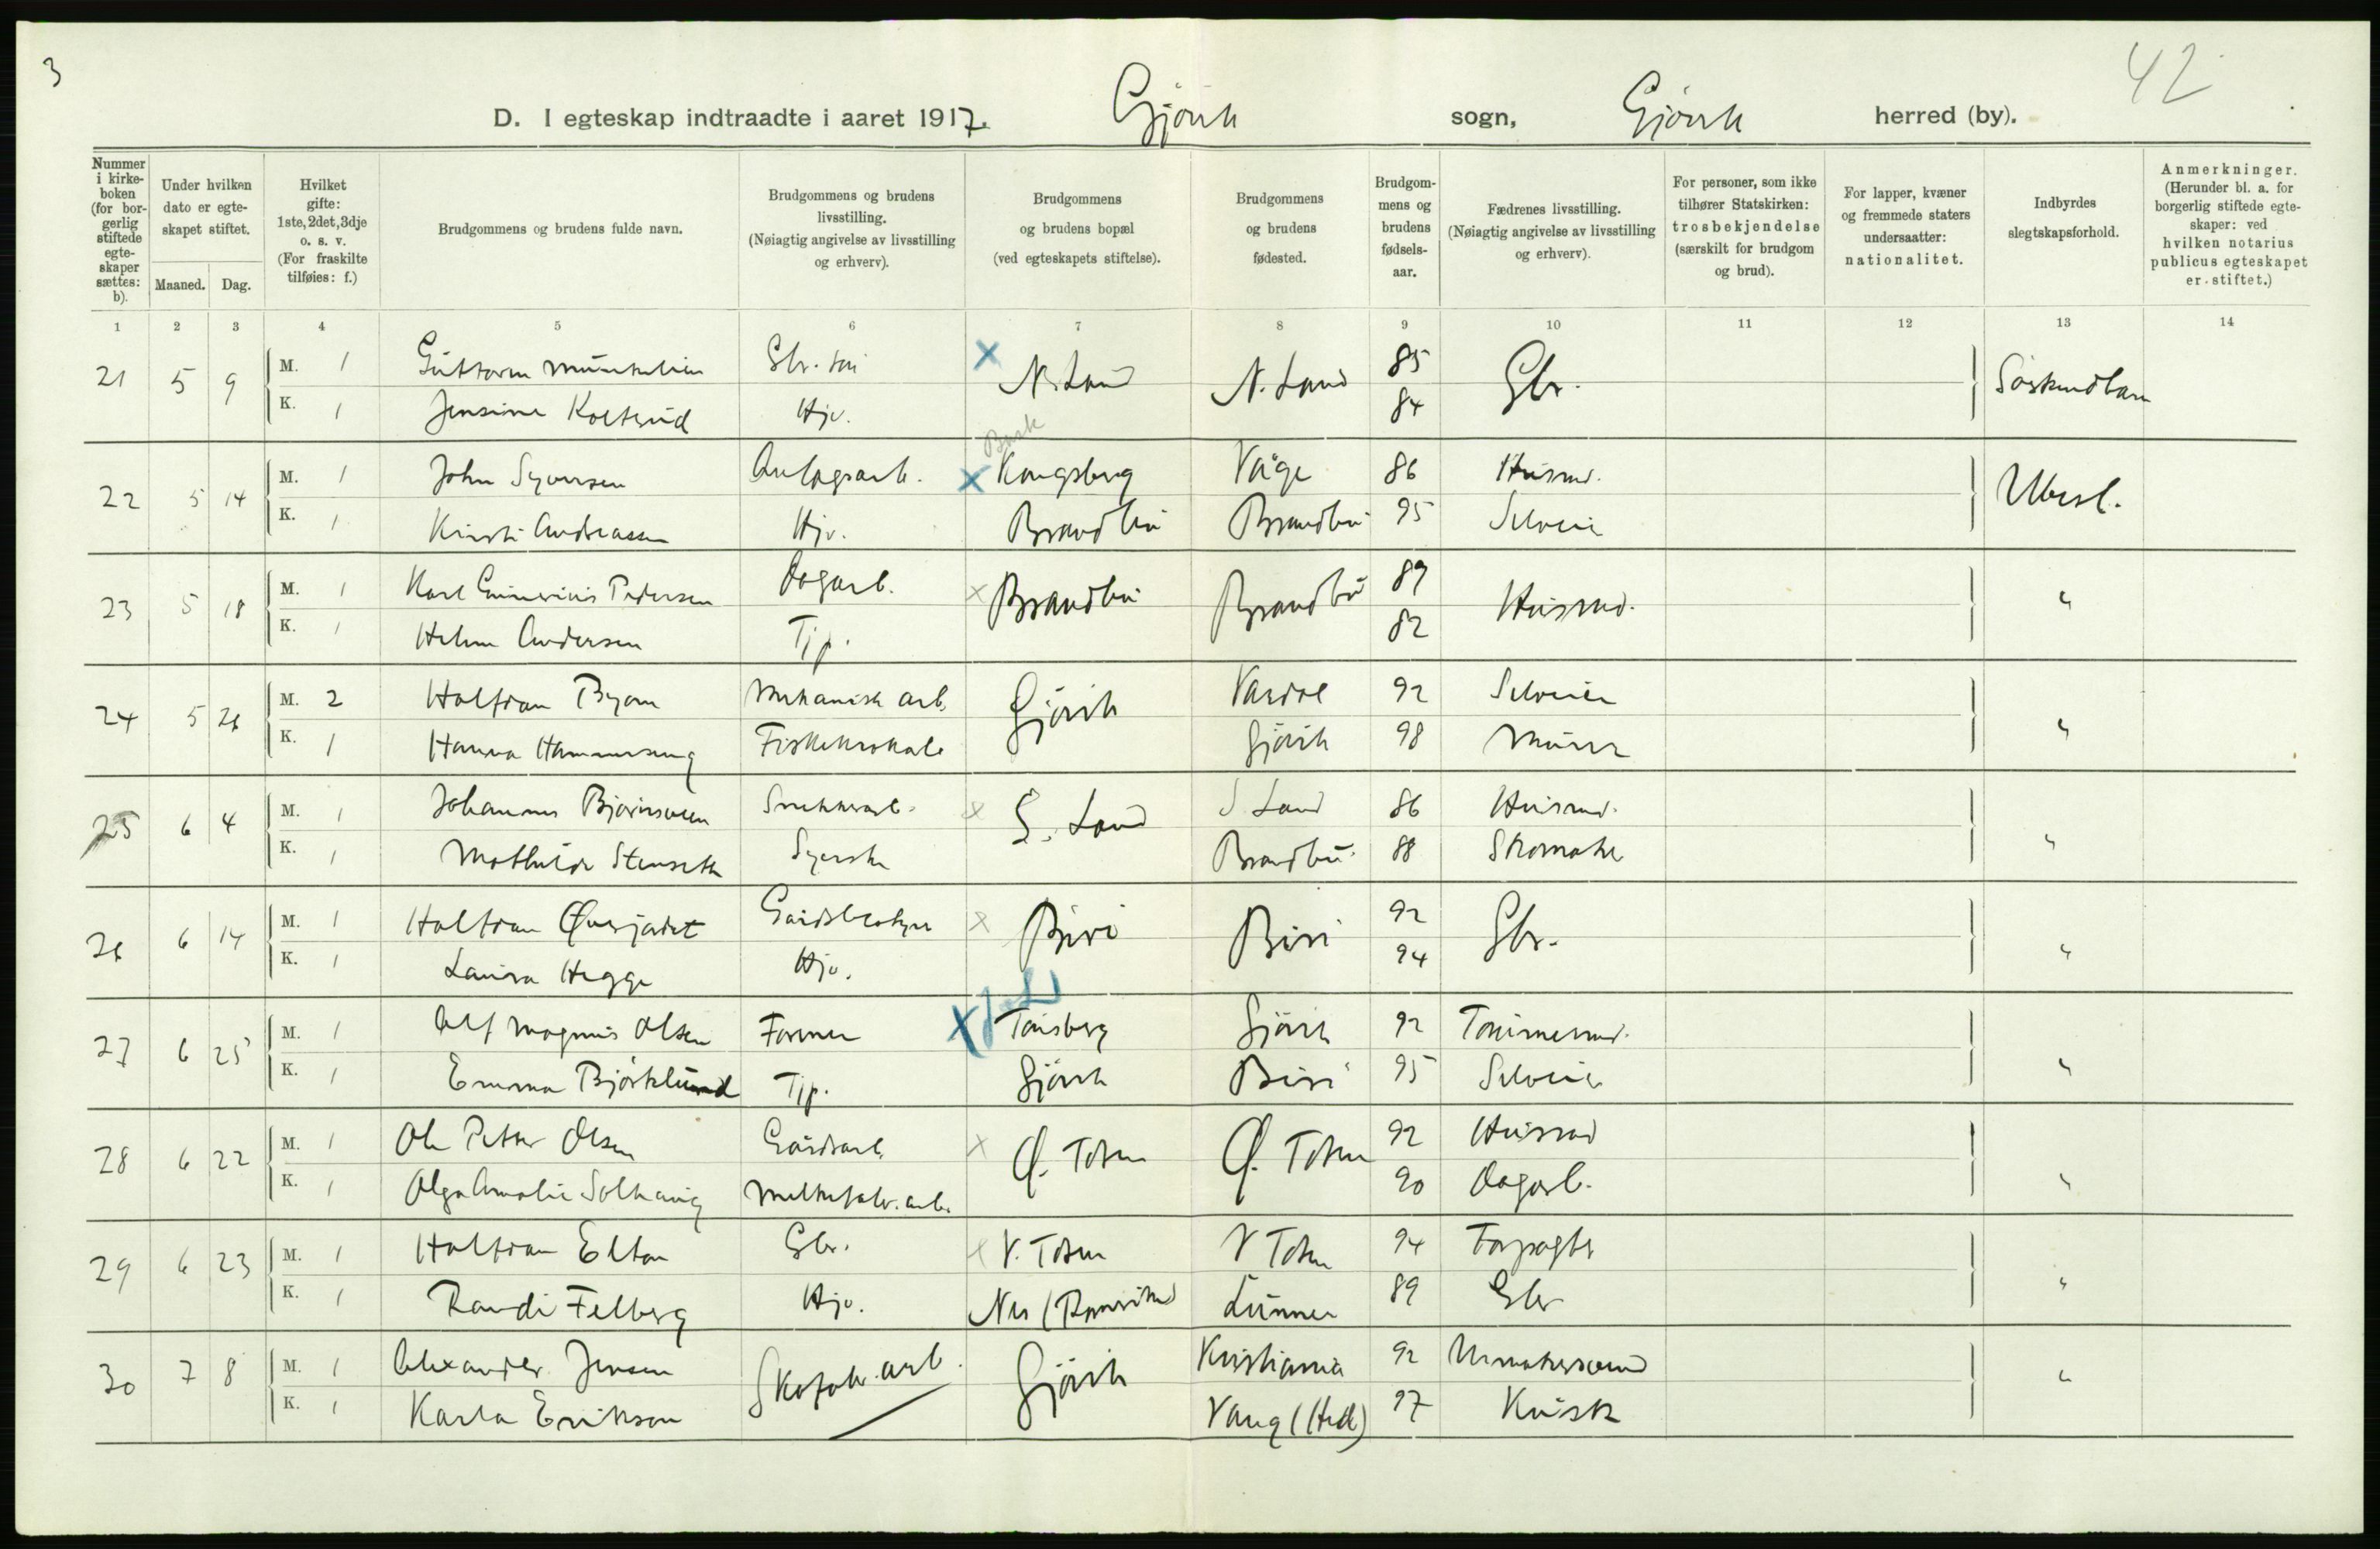 3
42
D. I egteskap indtraadte i aaret 1917. Gjövik sogn, Gjövik herred (by).
Nummer i kirke-boken (for bor-gerlig stiftede egte-skaper sættes: b).
Under hvilken dato er egte-skapet stiftet.
Maaned. Dag.
Hvilket gifte: 1ste, 2det, 3dje o. s. v. (For fraskilte tilføies: f.)
Brudgommens og brudens fulde navn.
Brudgommens og brudens livsstilling. (Nøiagtig angivelse av livsstilling og erhverv).
Brudgommens og brudens bopæl (ved egteskapets stiftelse).
Brudgommens og brudens fødested.
Brudgom-mens og brudens fødsels-aar.
Fædrenes livsstilling. (Nøiagtig angivelse av livsstilling og erhverv).
For personer, som ikke tilhører Statskirken: trosbekjendelse (særskilt for brudgom og brud).
For lapper, kvæner og fremmede staters undersaatter: nationalitet.
Indbyrdes slegtskapsforhold.
Anmerkninger. (Herunder bl. a. for borgerlig stiftede egte-skaper: ved hvilken notarius publicus egteskapet er stiftet.)
1 2 3 4 5 6 7 8 9 10 11 12 13 14
21 5 9 M. 1 Guttorm Gbr. søn x N. Land N. Land 85 Gbr. Søskendbarn
K. 1 Jensine Kolterud Hjv. 84
Busk
22 5 14 M. 1 John Syversen Anlægsarb. x Kongsberg Våge 86 Husmd. Ubesl.
K. 1 Kristi Andreassen Hjv. Brandbu Brandbu 95 Selveier
23 5 18 M. 1 Karl Gunerius Pedersen Dagarb. x Brandbu Brandbu 89 Husmd. "
K. 1 Helene Andersen Tjp. 82
24 5 26 M. 2 Halfdan Byom Mekanisk arb. Gjövik Vardal 92 Selveier "
K. 1 Hanna Hammerseng Fiskekrokarb Gjövik 98 Murer
25 6 4 M. 1 Johannes Björnsveen Snekkerarb. x S. Land S. Land 86 Husmd. "
K. 1 Mathilde Stenseth Syerske Brandbu 88 Skomaker
26 6 14 M. 1 Halfdan Øverjordet Gårdsbestyrer x Biri Biri 92 Gbr. "
K. 1 Laura Hegge Hjv. 94
27 6 25 M. 1 Alf Magnus Olsen Former x Tönsberg Gjövik 92 Tömmermd. "
K. 1 Emma Björklund Tjp. Gjövik Biri 95 Selveier
28 6 22 M. 1 Ole Petter Olsen Gårdsarb. x Ø. Toten Ø. Toten 92 Husmd "
K. 1 Olga Amalie Solhaug Melkefabr. arb. 90 Dagarb.
29 6 23 M. 1 Halfdan Elton Gbr. x V. Toten V Toten 94 Forpagter "
K. 1 Randi Felberg Hjv. Nes (Romerike) Lunner 89 Gbr
30 7 8 M. 1 Alexander Jensen Skofabr. arb. Gjövik Kristiania 92 Urmakersvend "
K. 1 Karla Erikson Vang (Hed) 97 Kusk